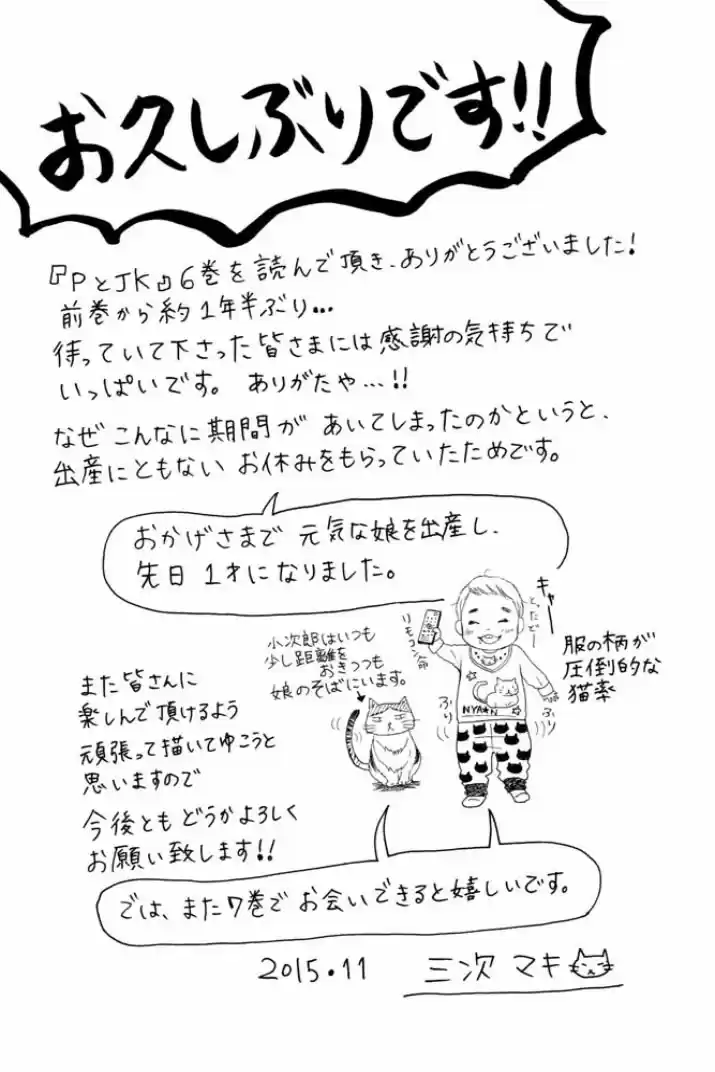 お久しぶりです!!
『PとJK』6巻を読んで頂き、ありがとうございました!
前巻から約1年半ぶり…
待っていて下さった皆さまには感謝の気持ちで
いっぱいです。 ありがたや…!!
なぜ こんなに期間が あいてしまったのかというと、
出産にともない お休みをもらっていたためです。
おかげさまで 元気な娘を出産し、
先日 1才になりました。
キャー
とったどー
リモコン命
小次郎はいつも
少し距離を
おきつつも
娘のそばにいます。
服の柄が
圧倒的な
猫率
NYA★N
ぶり
ぶり
また皆さんに
楽しんで頂けるよう
頑張って描いてゆこうと
思いますので
今後とも どうかよろしく
お願い致します!!
では、また7巻で お会いできると嬉しいです。
2015.11 三次 マキ